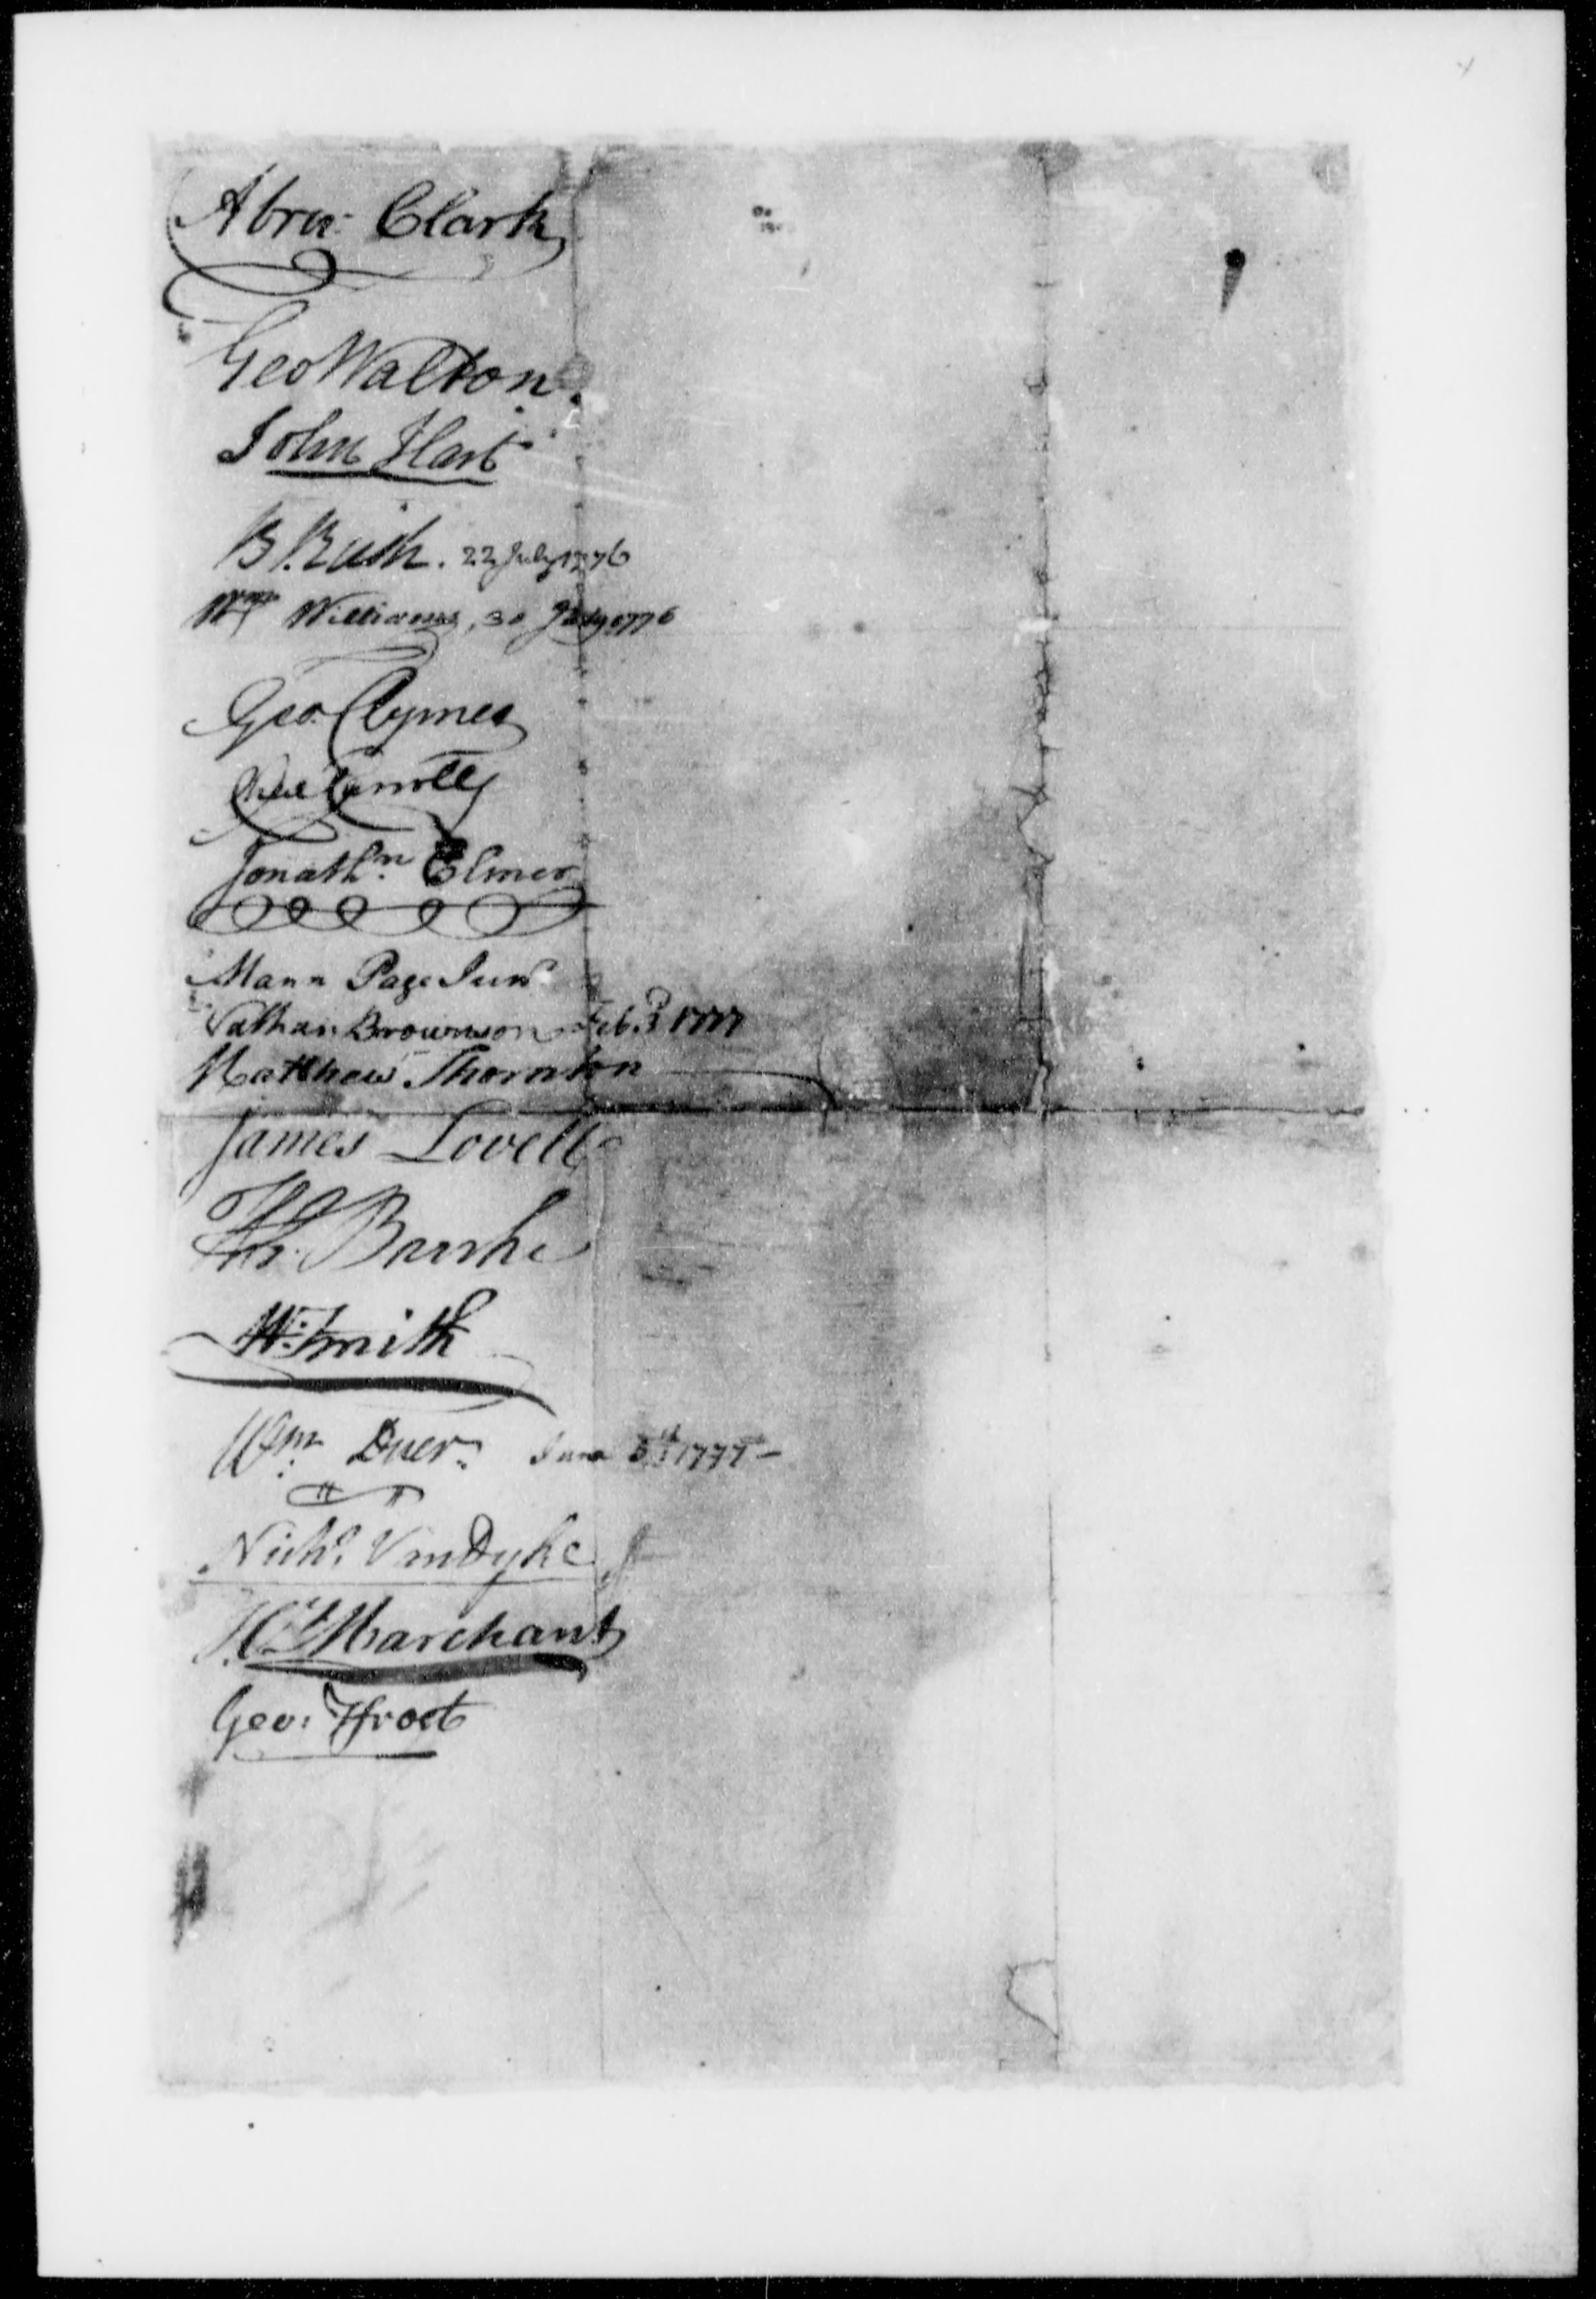 Abra: Clark
Geo Walton.
John Hart
B. Rush. 22 July 1776
Wm Williams, 30 July 1776
Geo. Clymer
Carroll
Jonathn. Elmer
Mann Page Junr
Nathan Brownson Feb. 3 1777
Matthew Thornton
James Lovell
Thos. Burke
W. Smith
Wm. Duer. June 5th 1777 -
Nichs. VanDyke
Hy. Marchant
Geo: Ffrost